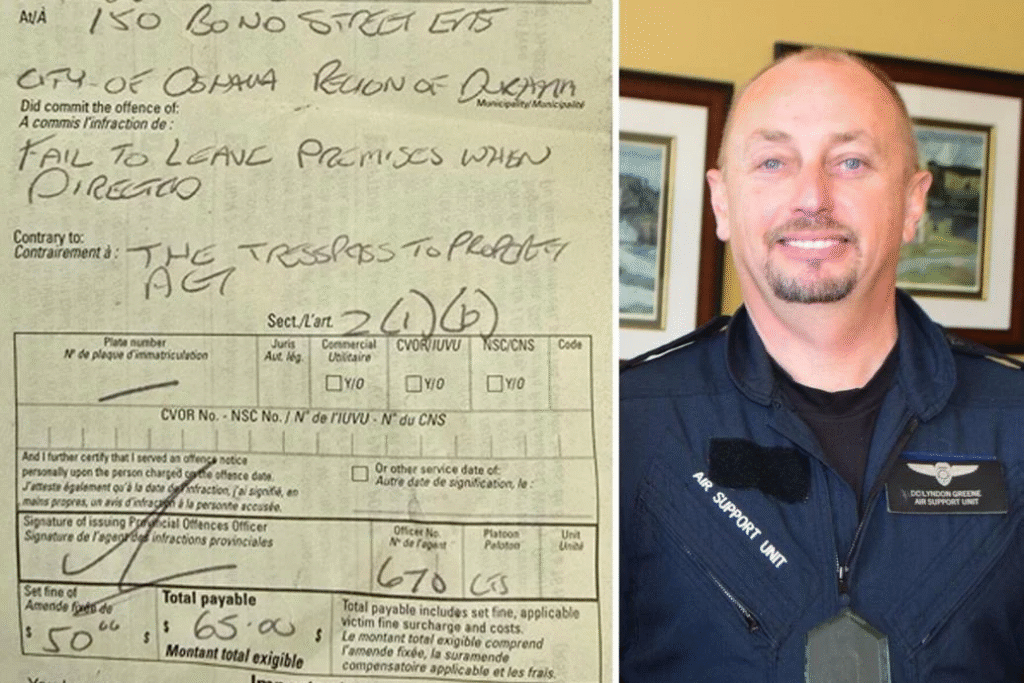 At/À 150 BOND STREET EAST
CITY OF OSHAWA REGION OF DURHAM
Municipality/Municipalité
Did commit the offence of:
A commis l'infraction de :
FAIL TO LEAVE PREMISES WHEN
DIRECTED
Contrary to:
Contrairement à : THE TRESSPASS TO PROPERTY
ACT
Sect./L'art. 2(1)(b)
Plate number
N° de plaque d'immatriculation
Juris
Aut. lég.
Commercial
Utilitaire
Y/O
CVOR/IUVU
Y/O
NSC/CNS
Y/O
Code
CVOR No. - NSC No. / N° de l'IUVU - N° du CNS
And I further certify that I served an offence notice
personally upon the person charged on the offence date.
J'atteste également qu'à la date de l'infraction, j'ai signifié, en
mains propres, un avis d'infraction à la personne accusée.
Or other service date of:
Autre date de signification, le :
Signature of issuing Provincial Offences Officer
Signature de l'agent des infractions provinciales
Officer No.
N° de l'agent
670
Platoon
Peloton
CTS
Unit
Unité
Set fine of
Amende fixée de
$ 50 00 $
Total payable
$ 65.00 $
Montant total exigible
Total payable includes set fine, applicable
victim fine surcharge and costs.
Le montant total exigible comprend
l'amende fixée, la suramende
compensatoire applicable et les frais.
AIR SUPPORT UNIT
DC LYNDON GREENE
AIR SUPPORT UNIT